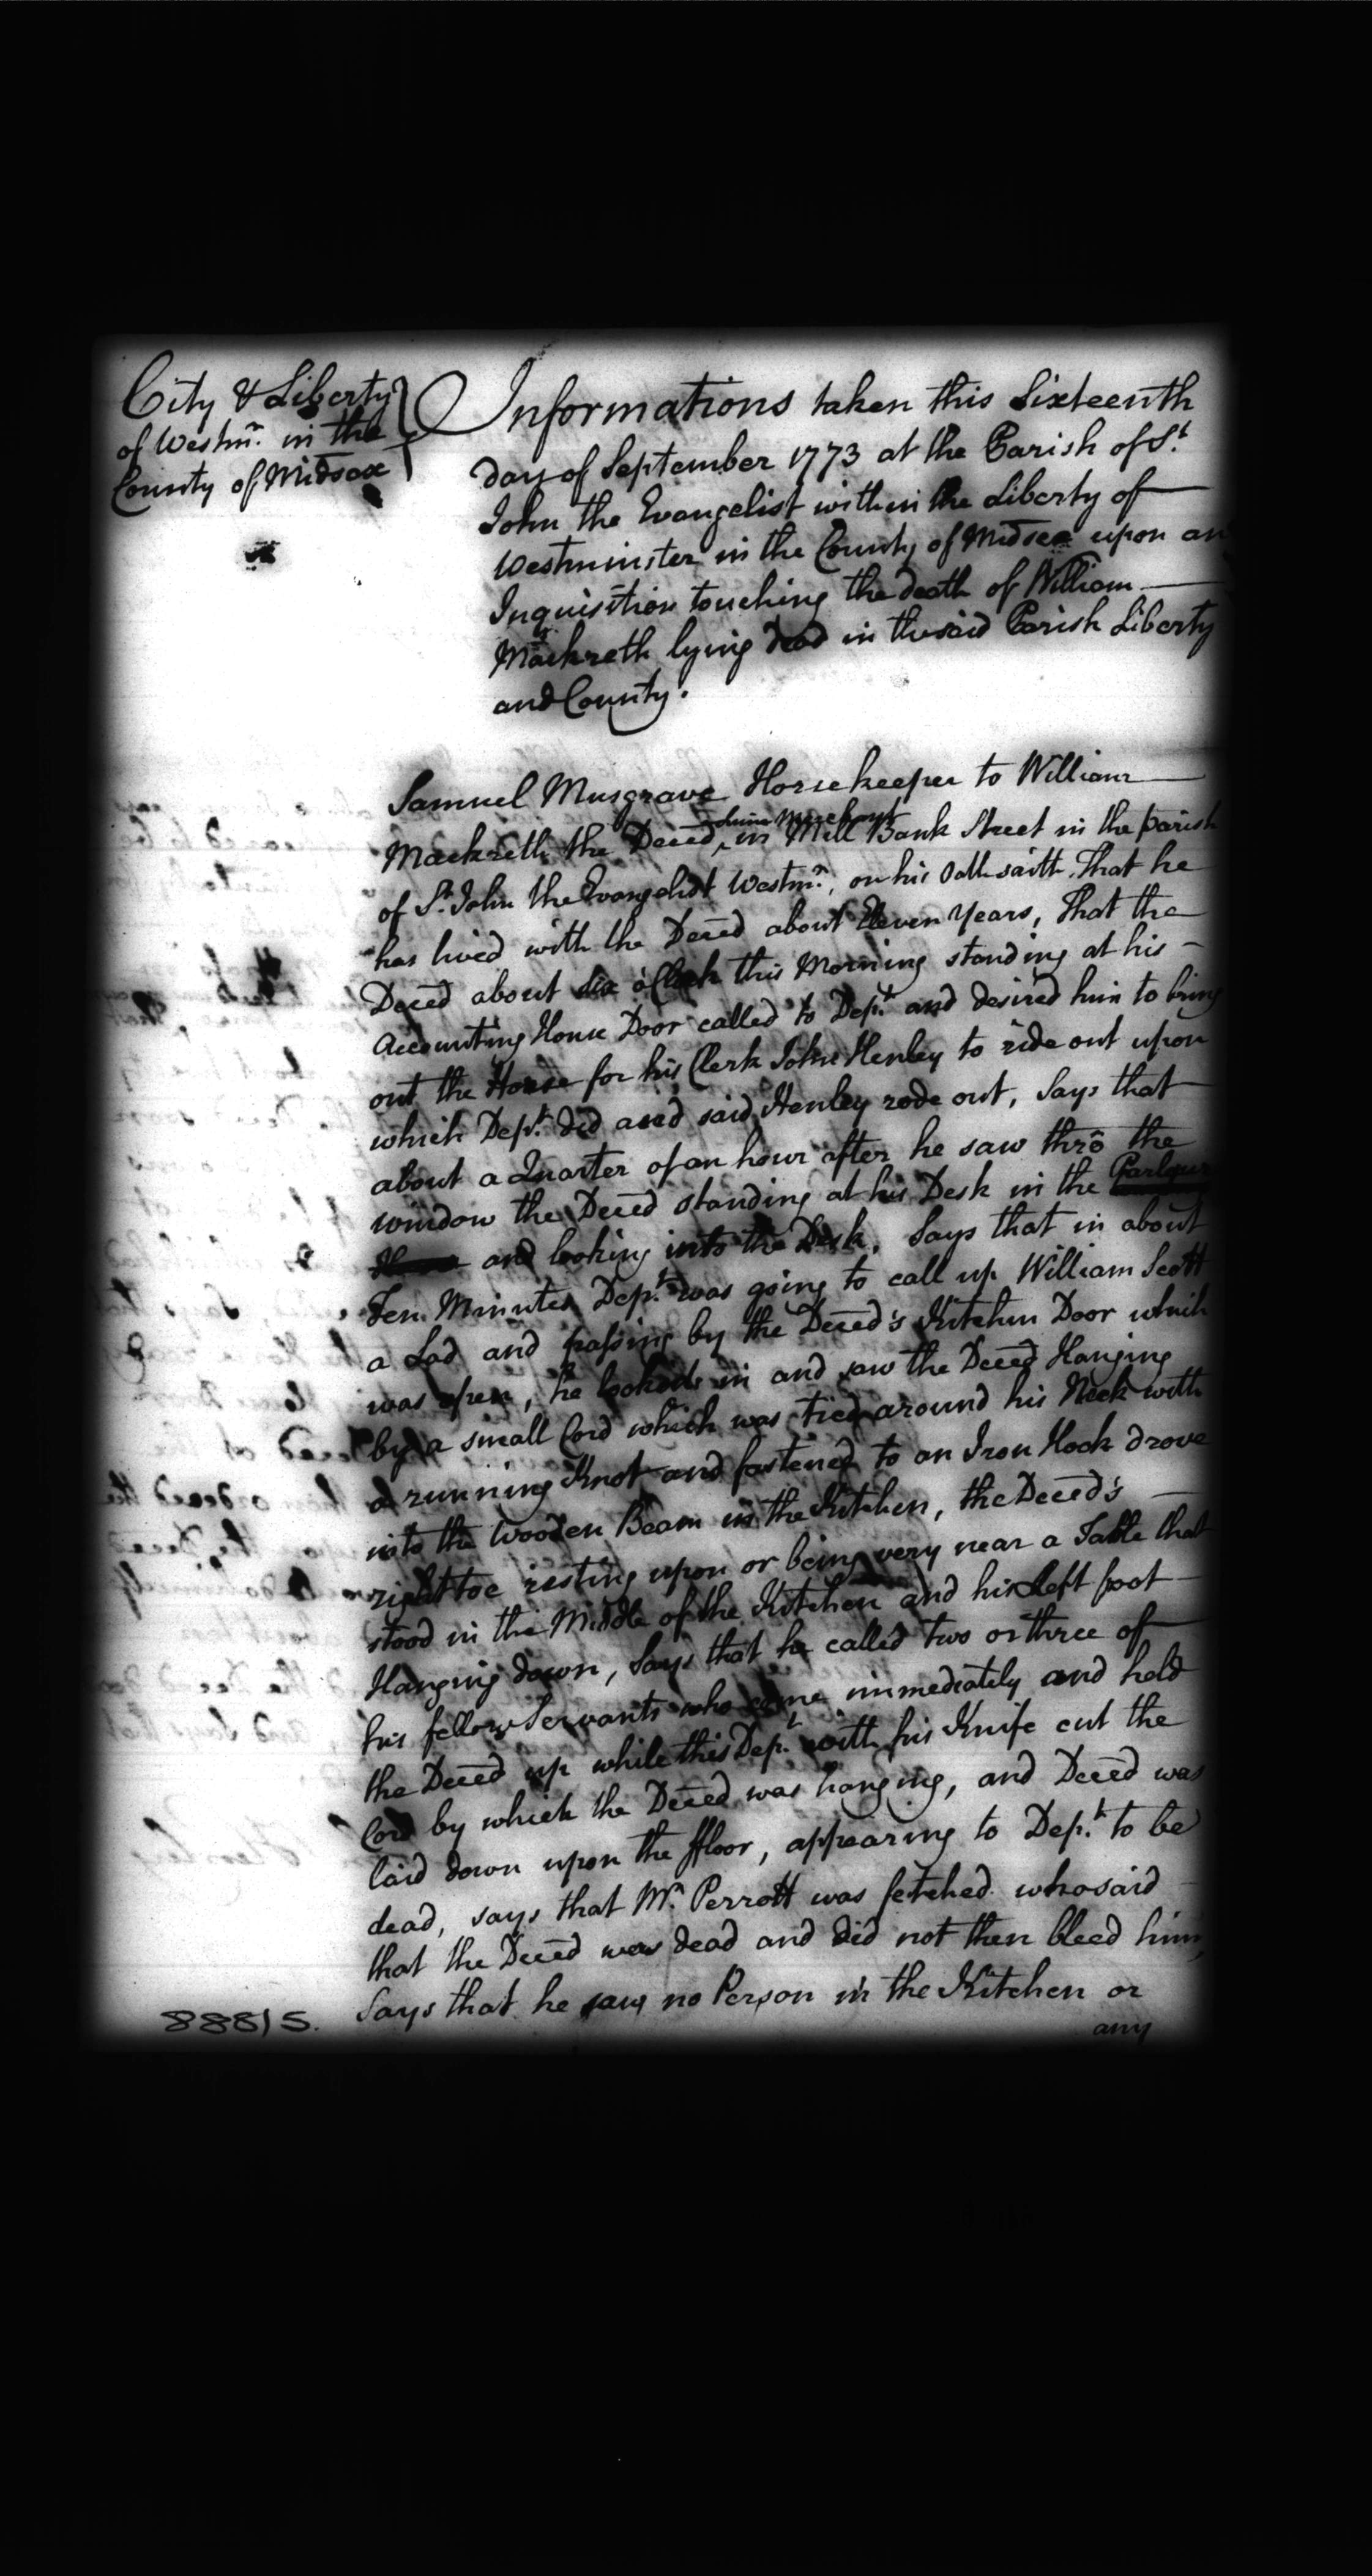 City & Liberty
of Westmr. in the
County of Midsex
Informations taken this Sixteenth
day of September 1773 at the Parish of St.
John the Evangelist within the Liberty of
Westminster in the County of Midsex upon an
Inquisition touching the death of William
Mackreth lying dead in the said Parish Liberty
and County.
Samuel Musgrave Horsekeeper to William
Merchant
Mackreth the Deced, in Mill Bank Street in the parish
of St. John the Evangelist Westmr., on his Oath saith, That he
has lived with the Deced about Eleven Years, That the
Deced about six o'Clock this Morning standing at his
Accounting House Door called to Dept. and desired him to bring
out the Horse for his Clerk John Henley to ride out upon
which Dept. did and said Henley rode out, Says that
about a Quarter of an hour after he saw thrō the
window the Deced standing at his Desk in the Parlour
and looking into the Desk, Says that in about
Ten Minutes Dept. was going to call up William Scott
a Lad and passing by the Deced's Kitchen Door which
was open, he looked in and saw the Deced Hanging
by a small Cord which was tied around his Neck with
a running Knot and fastened to an Iron Hook drove
into the Wooden Beam in the Kitchen, the Deced's
right toe resting upon or being very near a Table that
stood in the Middle of the Kitchen and his left foot
Hanging down, Says that he called two or three of
his fellow Servants who came immediately and held
the Deced up while this Dept. with his Knife cut the
Cord by which the Deced was hanging, and Deced was
laid down upon the ffloor, appearing to Dept. to be
dead, says that Mr. Perrott was fetched who said
that the Deced was dead and did not then bleed him,
Says that he saw no Person in the Kitchen or
any
88815.